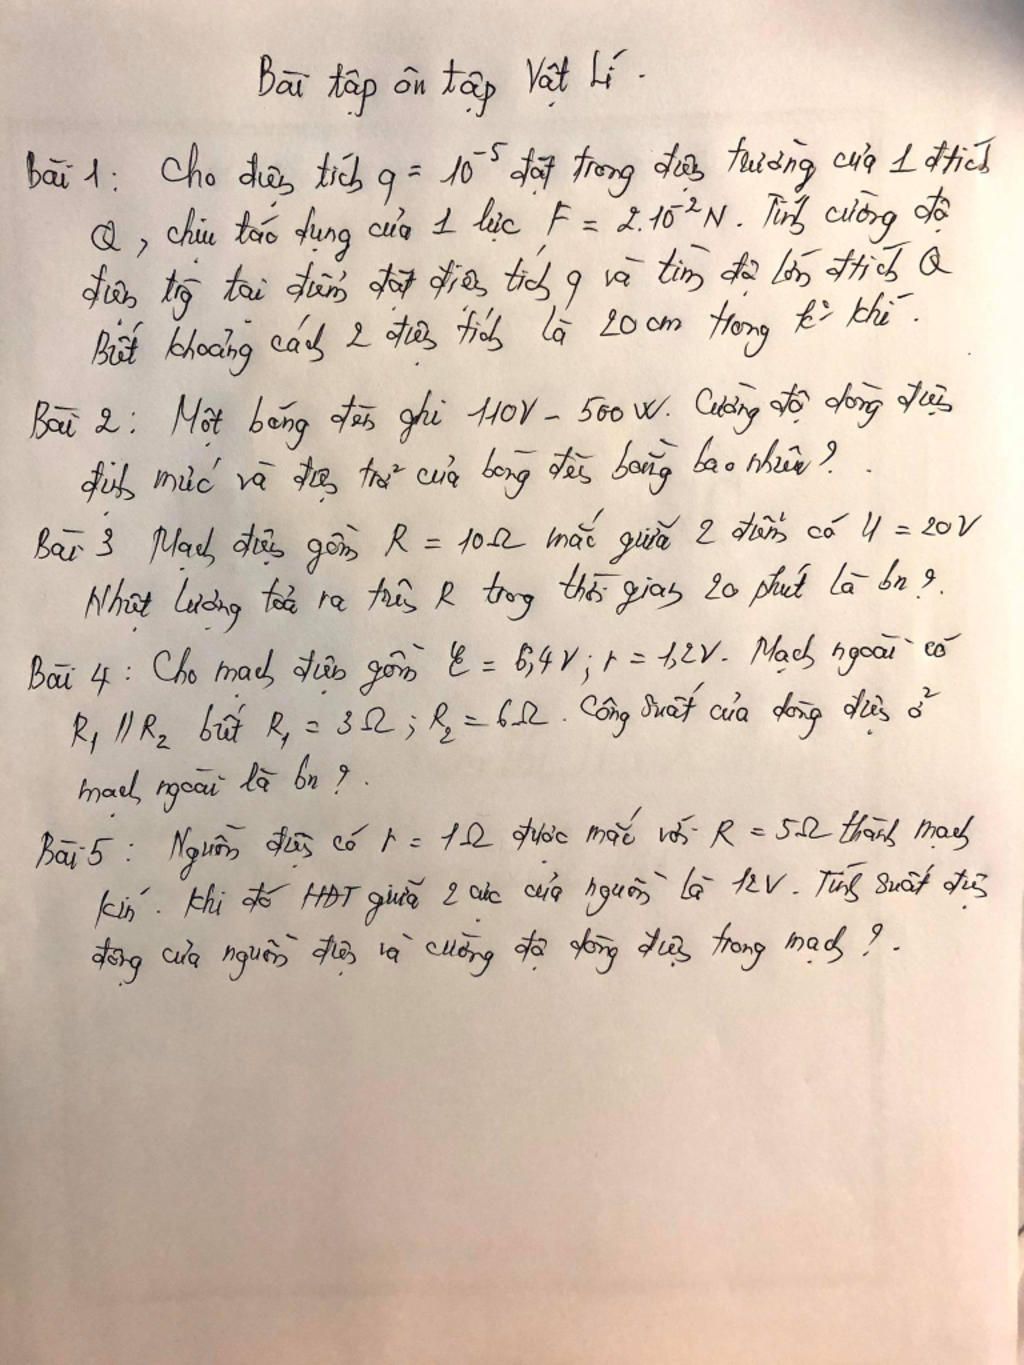 Bài tập ôn tập Vật Lí.
Bài 1: Cho điện tích q = 10⁻⁵ đặt trong điện trường của 1 đtích
Q, chịu tác dụng của 1 lực F = 2.10⁻² N. Tính cường độ
điện trg tại điểm đặt điện tích q và tìm độ lớn đtích Q
Biết khoảng cách 2 điện tích là 20 cm trong k² khí.
Bài 2: Một bóng đèn ghi 110V - 500 W. Cường độ dòng điện
định mức và điện trở của bóng đèn bằng bao nhiêu?
Bài 3 Mạch điện gồm R = 10Ω mắc giữa 2 điểm có U = 20V
Nhiệt lượng toả ra trên R trong thời gian 20 phút là bn?
Bài 4: Cho mạch điện gồm ℰ = 6,4V; r = 1,2V. Mạch ngoài có
R₁ // R₂ biết R₁ = 3Ω; R₂ = 6Ω. Công suất của dòng điện ở
mạch ngoài là bn?
Bài 5: Nguồn điện có r = 1Ω được mắc với R = 5Ω thành mạch
kín. Khi đó HĐT giữa 2 cực của nguồn là 12V. Tính suất điện
động của nguồn điện và cường độ dòng điện trong mạch?.